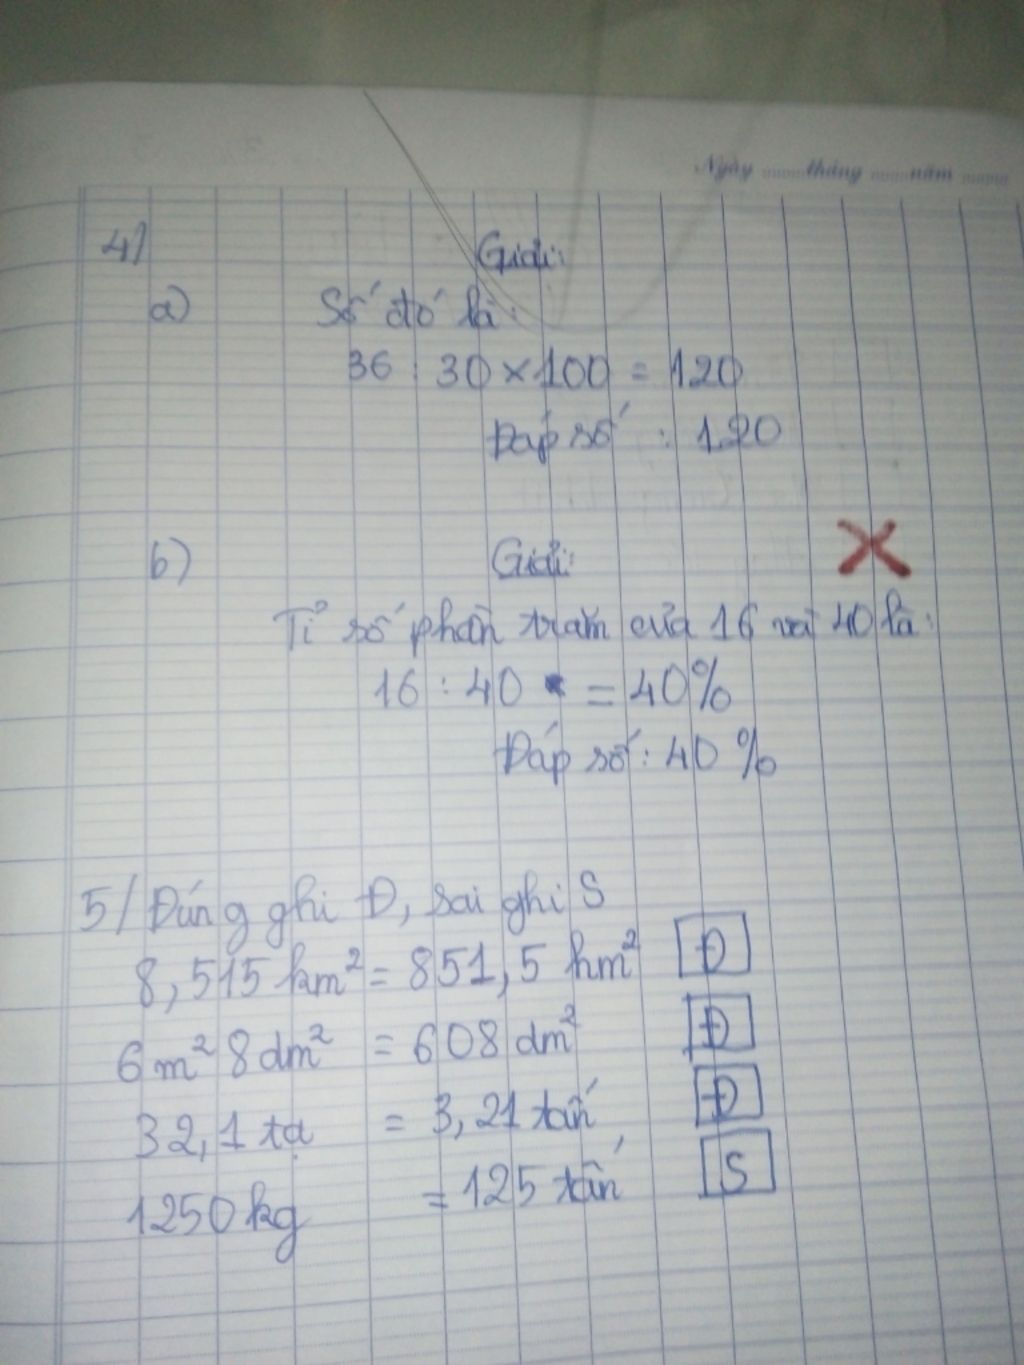 Ngày ......tháng ......năm ......
4/ Giải:
a) Số đó là:
36 : 30 × 100 = 120
Đáp số : 120
b) Giải:
Tỉ số phần trăm của 16 và 40 là:
16 : 40 = 40%
Đáp số : 40 %
5/ Đúng ghi Đ, sai ghi S
8,515 km² = 851,5 hm² Đ
6 m² 8 dm² = 608 dm² Đ
32,1 tạ = 3,21 tấn Đ
1250 kg = 125 tấn S